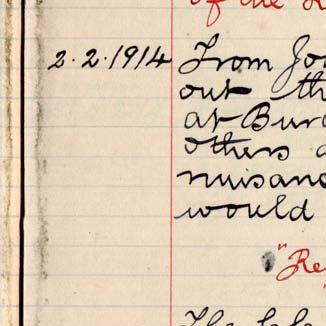 of the
2.2.1914 From
out th
at Bur
others a
nuisanc
would
"Re